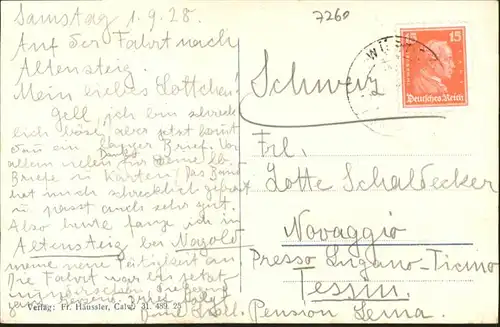 Samstag 1.9.28.
7260
Auf der Fahrt nach
Altensteig
Mein liebes Lottchen!
Gell, ich bin schreck
lich böse, aber jetzt kommt
dann ein langer Brief. Vor
allem vielen Dank für Deine lb.
Briefe u. Karten! Das Band
hat mich schrecklich gefreut
u. passt auch sehr gut.
Also heute fange ich in
Altensteig bei Nagold
meine neue Tätigkeit an
Die Fahrt war bis jetzt
Brief folgt
15 15
Deutsches Reich
Schweiz
Frl.
Lotte Schaldecker
Novaggio
Presso Lugano-Ticino
Tessin.
Pension Lema.
Verlag: Fr. Häussler, Calw. 31. 489. 25